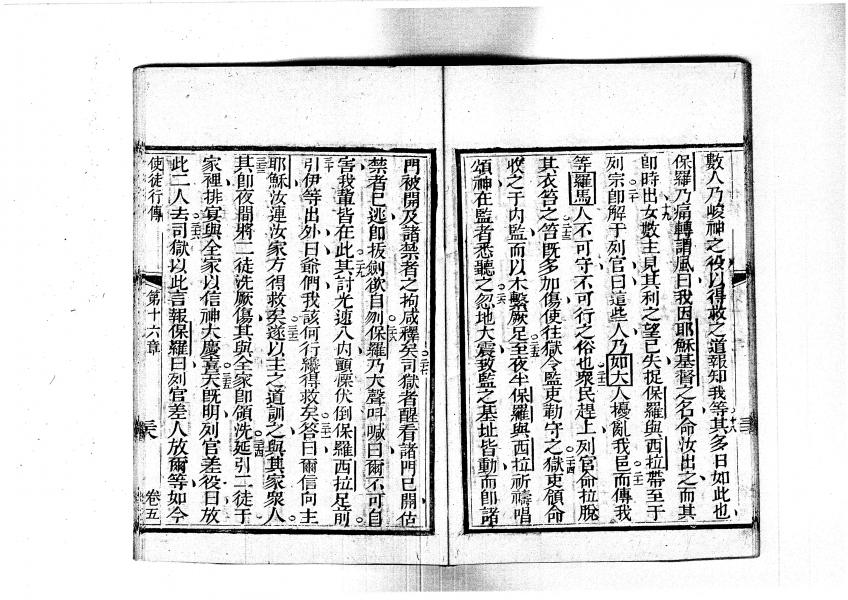 數人乃峻神之役以得救之道報知我等其多日如此也
十八
保羅乃痛轉謂風曰我因耶穌基督之名命汝出之而其
十九
即時出女數主見其利之望已失捉保羅與西拉帶至于
二十
二十一
列宗即解于列官曰這些人乃如大人擾亂我邑而傳我
二十二
等羅馬人不可守不可行之俗也衆民趕上列官命拉脫
二十三
二十四
其衣笞之笞旣多加傷使往獄令監吏勒守之獄吏領命
二十五
收之于内監而以木繫厥足至夜半保羅與西拉祈禱唱
二十六
頌神在監者悉聽之忽地大震致監之基址皆動而即諸
二十七
門被開及諸禁者之拘咸釋矣司獄者醒看諸門已開估
二十八
禁者已逃即拔劍欲自刎保羅乃大聲呌喊曰爾不可自
二十九
害我輩皆在此其討光連入内顫慄伏倒保羅西拉足前
三十
三十一
引伊等出外曰爺們我該何行纔得救矣答曰爾信向主
三十二
耶穌汝連汝家方得救矣遂以主之道訓之與其家衆人
三十三
三十四
其即夜間將二徒洗厥傷其與全家即領洗延引二徒于
三十五
家裡排宴與全家以信神大慶喜天旣明列官差役曰放
三十六
此二人去司獄以此言報保羅曰列官差人放爾等如今
使徒行傳
第十六章
卷五